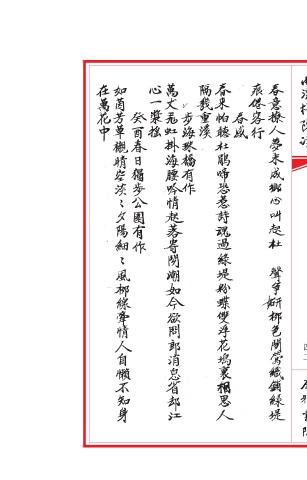 春意撩人夢未成鄉心叫起杜 聲爭妍柳色閒鶯織綠堤
痕儘容行
春感
春來怕聽杜鵑啼恐惹詩魂過綠堤粉蝶雙浮花塢裏相思人
隔幾重溪
步海珠橋有作
萬丈長虹掛海腰吟情起落寄閒潮如今欲問郎消息省却江
心一槳搖
癸酉春日獨步公園有作
如茵芳草襯晴空淡〻夕陽細〻風柳線牽情人自懶不知身
在萬花中